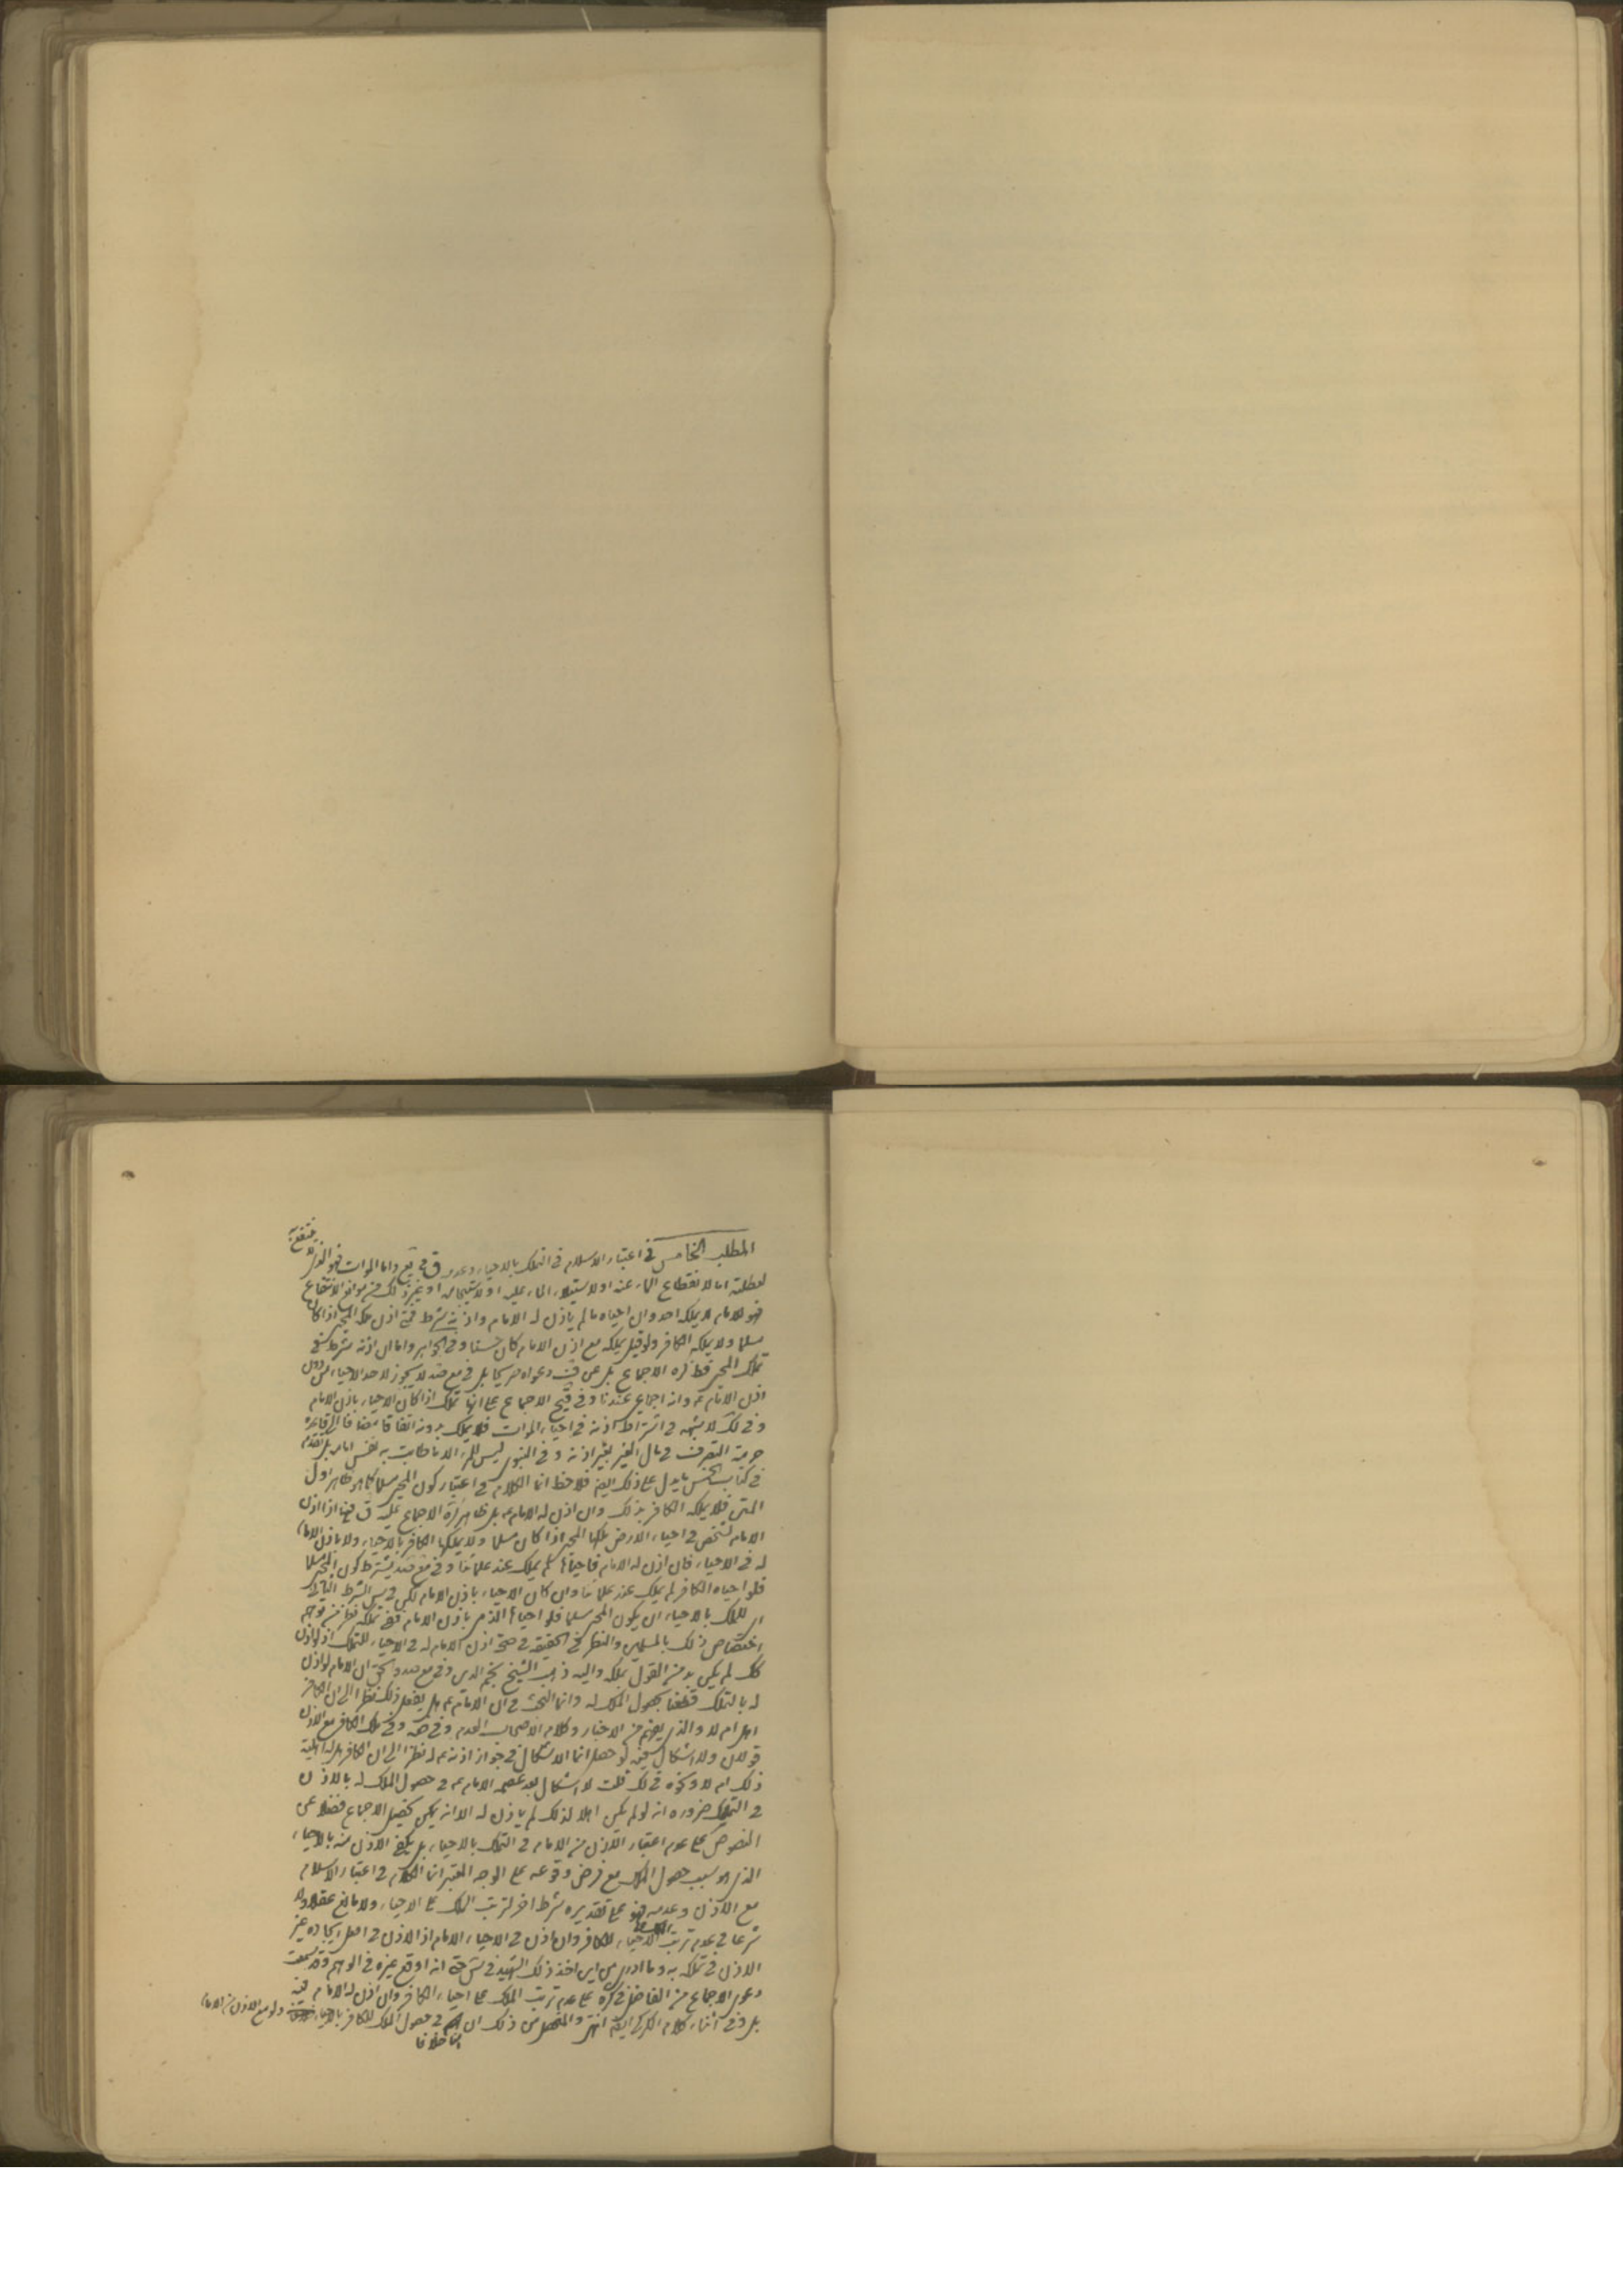 المطلب الخامس في اعتبار الاسلام في التملك بالاحياء وعدمه في يع واما الموات فهو الذي لا ينتفع به
لعطلته اما لانقطاع الماء عنه او لاستيلاء الماء عليه او لاستيجامه او غير ذلك من موانع الانتفاع
فهو للامام لا يملكه احد وان احياه ما لم يأذن له الامام واذنه شرط فمتى اذن ملكه المحيي اذا كان
مسلما ولا يملكه الكافر ولو قيل يملكه مع اذن الامام كان حسنا وفي الجواهر واما ان اذنه شرط في
تملك المحيي فظاهر كره الاجماع بل عن ف دعواه صريحا بل في مع صد لا يجوز لاحد الاحياء من دون
اذن الامام ع وانه اجماع عندنا وفي قيح الاجماع على انها تملك اذا كان الاحياء باذن الامام
وفي لك لا شبهه في اشتراط اذنه في احياء الموات فلا يملك بدونه اتفاقا مضافا الى قاعدة
حرمة التصرف في مال الغير بغير اذنه وفي النبوي ليس للمرء الا ما طابت به نفس امامه بل تقدم
في كتاب الخمس ما يدل على ذلك ايضا فلاحظ انما الكلام في اعتبار كون المحيي مسلما كما هو ظاهر اول
المتن فلا يملكه الكافر بذلك وان اذن له الامام ع بل ظاهر كرة الاجماع عليه ق فيها اذا اذن
الامام لشخص في احياء الارض ملكها المحيي اذا كان مسلما ولا يملكها الكافر بالاحياء ولا باذن الامام
له في الاحياء فان اذن له الامام فاحياها لم يملك عند علمائنا وفي مع صد يشترط كون المحيي مسلما
فلو احياه الكافر لم يملك عند علمائنا وان كان الاحياء باذن الامام لكن في س الشرط الثاني
اي للملك بالاحياء ان يكون المحيي مسلما فلو احياها الذمي باذن الامام ففي تملكه نظر من توهم
اختصاص ذلك بالمسلمين والنظر في الحقيقة في صحة اذن الامام له في الاحياء للتملك اذ لو اذن
كك لم يكن بد من القول بملكه واليه ذهب الشيخ نجم الدين وفي مع صد والحق ان الامام لو اذن
له بالتملك قطعنا بحصول الملك له وانما البحث في ان الامام ع هل يفعل ذلك نظرا الى ان الكافر
اهل ام لا والذي يفهم من الاخبار وكلام الاصحاب العدم وفي ضه وفي ملك الكافر مع الاذن
قولان ولا اشكال فيه لو حصل انما الاشكال في جواز اذنه ع له نظرا الى ان الكافر هل له اهلية
ذلك ام لا ونحوه في لك قلت لا اشكال بعد عصمه الامام ع في حصول الملك له بالاذن
في التملك ضروره انه لو لم يكن اهلا لذلك لم يأذن له الا انه يمكن تحصيل الاجماع فضلا عن
النصوص على عدم اعتبار الاذن من الامام في التملك بالاحياء بل يكفي الاذن منه بالاحياء
الذي هو سبب حصول الملك مع فرض وقوعه على الوجه المعتبر انما الكلام في اعتبار الاسلام
مع الاذن وعدمه فهو على تقديره شرط اخر لترتب الملك على الاحياء ولا مانع عقلا ولا
شرعا في عدم ترتب الملك على الاحياء للكافر وان اذن في الاحياء الامام اذ الاذن في اصل ايجاده غير
الاذن في تملكه به وما ادري من اين اخذ ذلك الشهيد في س حتى انه اوقع غيره في الوهم وقد سمعت
دعوى الاجماع من الفاضل في كرة على عدم ترتب الملك على احياء الكافر وان اذن له الامام فيه
بل وفي اثناء كلام الكركي ايضا انتهى والمتحصل من ذلك ان في حصول الملك للكافر بالاحياء ولو مع الاذن من الامام
خلافا